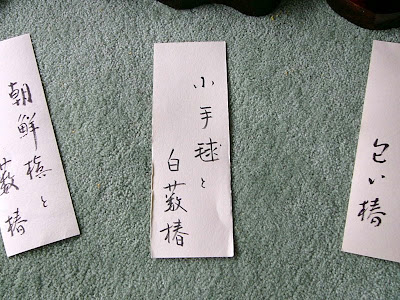 匂い椿
小手毬と
白薮椿
朝鮮槙と
薮椿